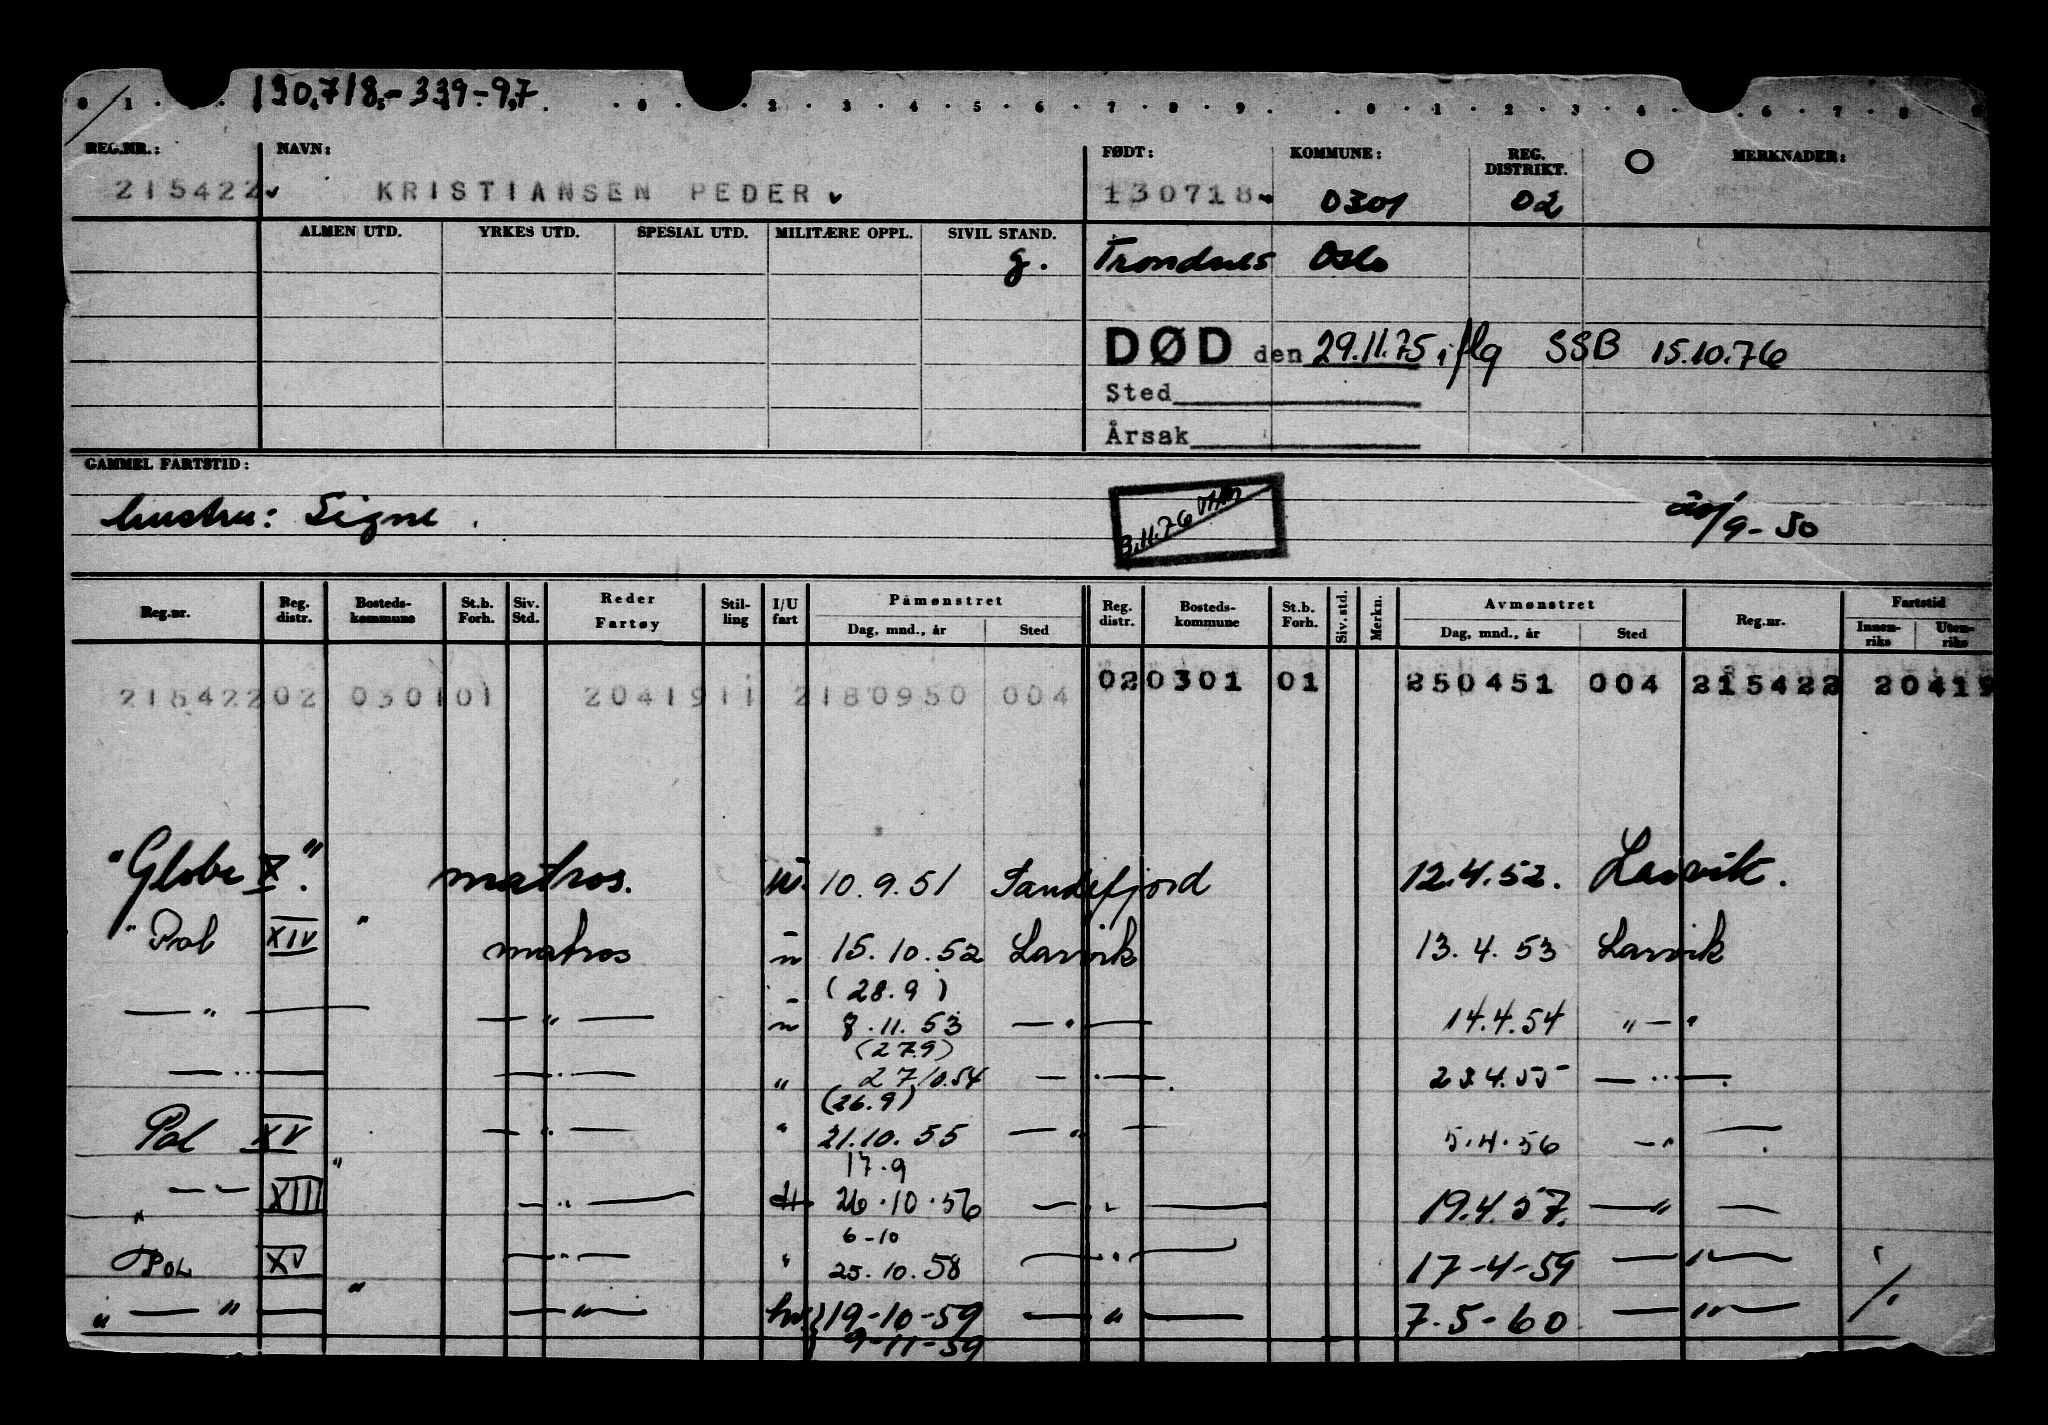 130.718.-339-9.7
REG.NR.: NAVN: FØDT: KOMMUNE: REG. DISTRIKT. O MERKNADER:
215422 KRISTIANSEN PEDER 130718 0301 02
ALMEN UTD. YRKES UTD. SPESIAL UTD. MILITÆRE OPPL. SIVIL STAND.
g. Trondnes Oslo
DØD den 29.11.75 iflg SSB 15.10.76
Sted
Årsak
GAMMEL FARTSTID:
hustru: Signe.
3.11.76
/9-50
Reg.nr. Reg. distr. Bosteds-kommune St.b. Forh. Siv. Std. Reder Fartøy Stil-ling I/U fart Påmønstret Dag, mnd., år Sted Reg. distr. Bosteds-kommune St.b. Forh. Siv. std. Merkn. Avmønstret Dag, mnd., år Sted Reg.nr. Fartstid Innen-riks Uten-riks
215422 02 0301 01 2041911 2180950 004 02 0301 01 250451 004 215422 20419
"Globe X". matros. 10.9.51 Sandefjord 12.4.52. Larvik.
"Pol XIV" matros u 15.10.52 Larvik 13.4.53 Larvik
(28.9)
— " — — " — u 8.11.53 — " — 14.4.54 " — "
(27.9)
— " — — " — " 27/10.54 — " — 23.4.55 — " —
(26.9)
Pol XV — " — " 21.10.55 — " — 5.4.56 — " —
17.9
— " — XIII" — " — 26.10.56 — " — 19.4.57. — " —
6-10
"Pol XV" — " — " 25.10.58 — " — 17-4-59 — " —
" — " — — " — hv. 19-10-59 — " — 7.5-60 — " —
9-11-59